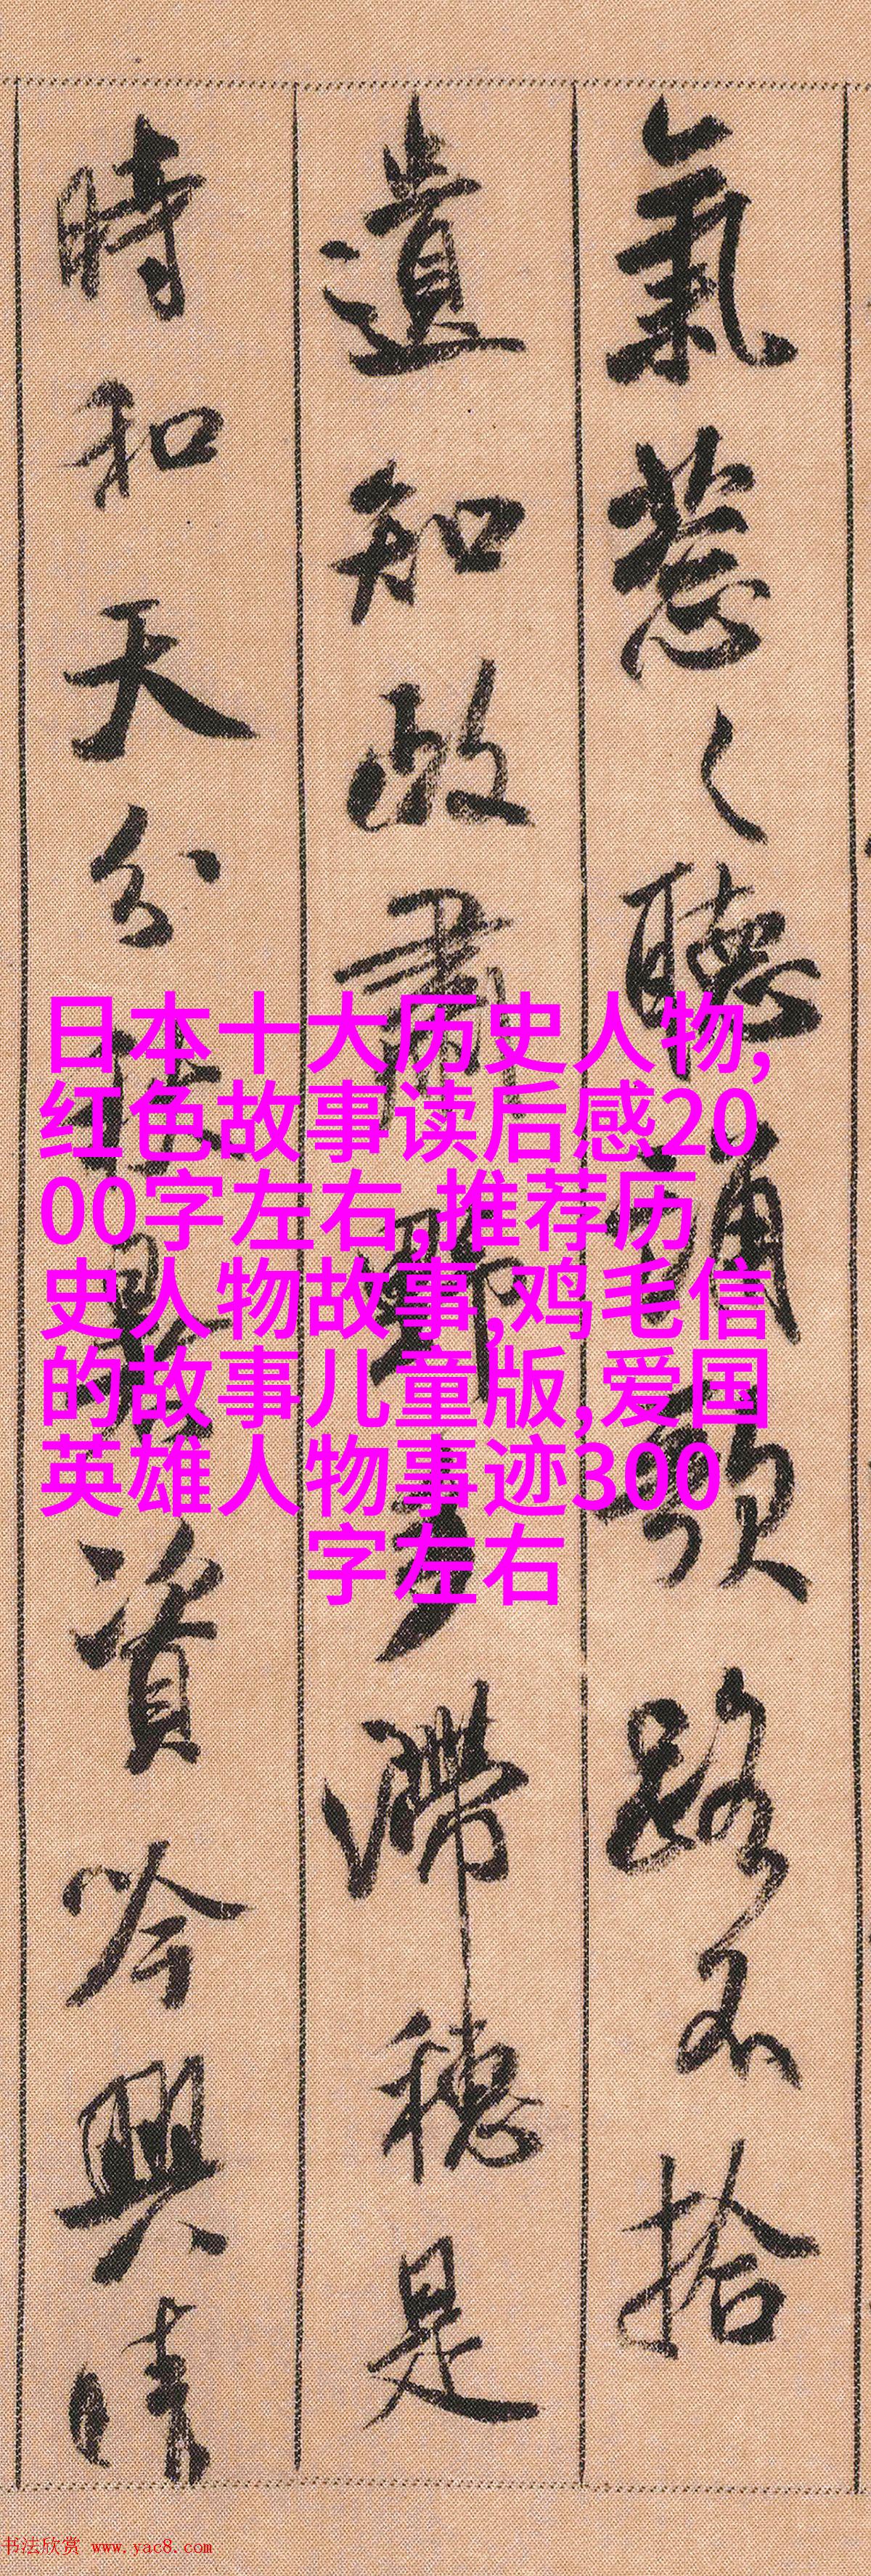 氣葱〻聽誦歌路不拾
遺知政肅野多滯穗是
時和天分秋暑資吟興晴
日本十大历史人物,
红色故事读后感20
00字左右,推荐历
史人物故事,鸡毛信
的故事儿童版,爱国
英雄人物事迹300
字左右
书法欣赏 www.yac8.com